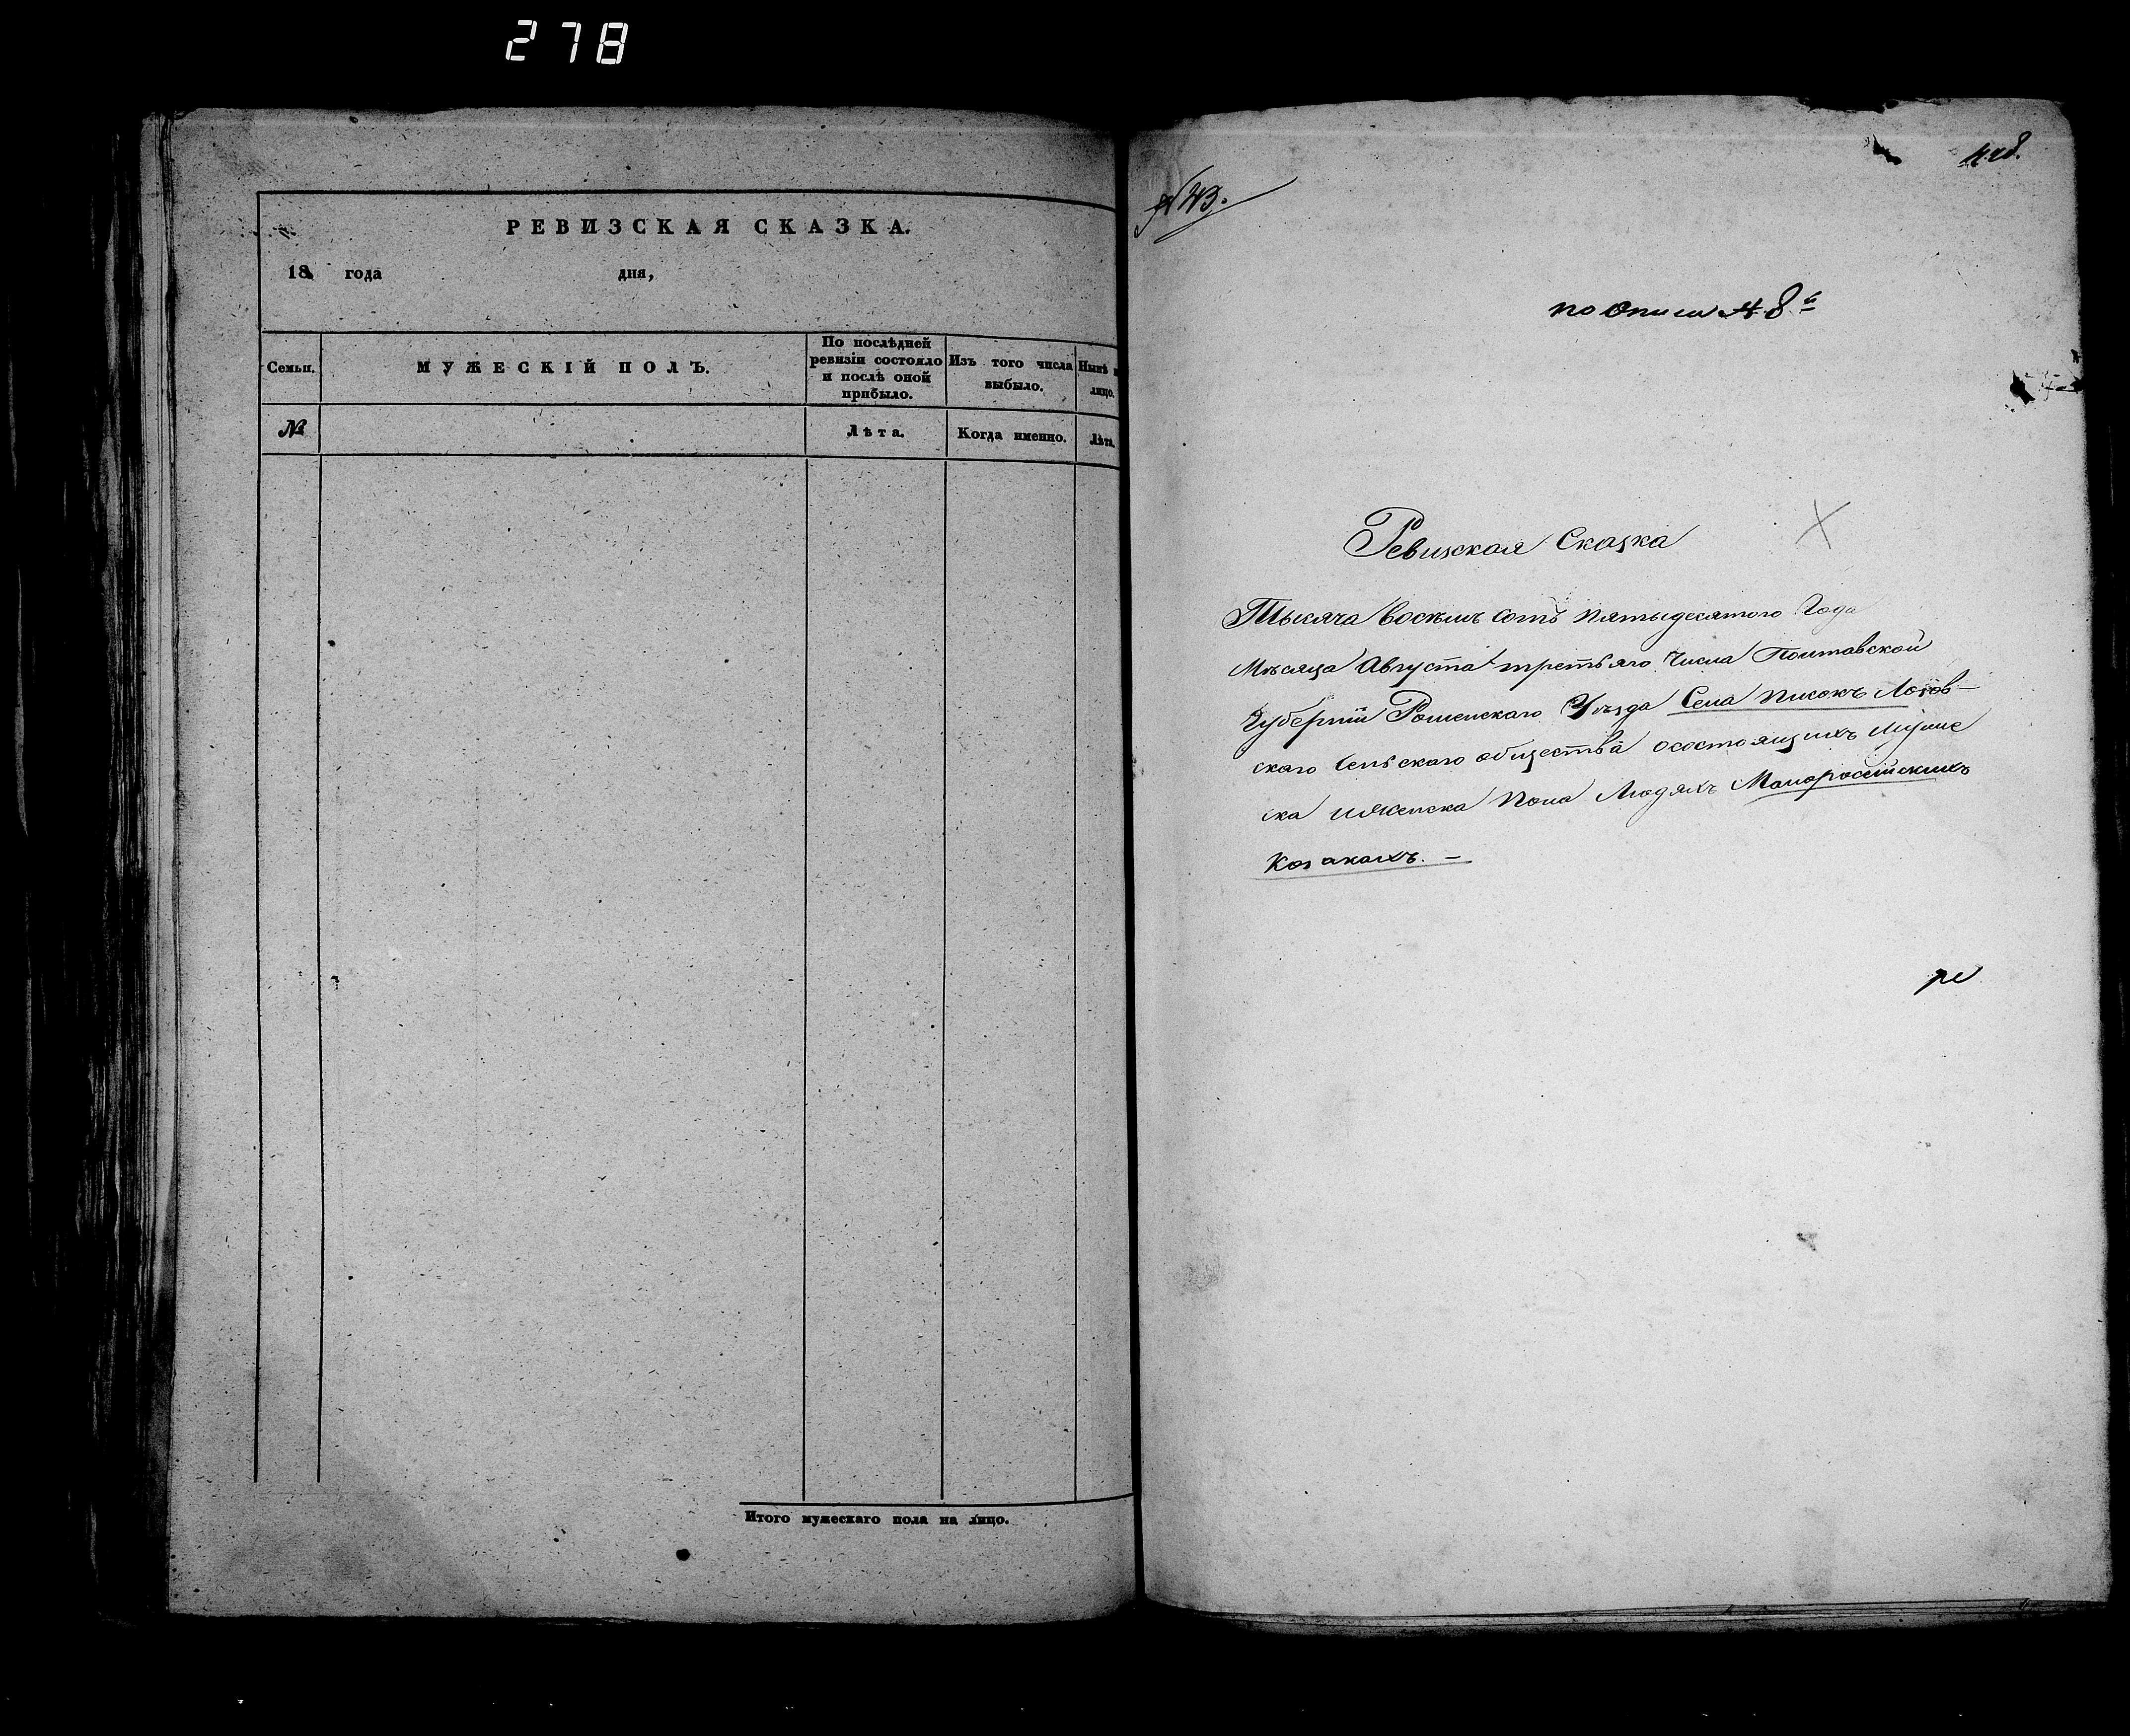 278
РЕВИЗСКАЯ СКАЗКА.
18 года дня,
Семьи.
МУЖЕСКІЙ ПОЛЪ.
По послѣдней
ревизіи состояло
и послѣ оной
прибыло.
Изъ того числа
выбыло.
Нынѣ
лицо.
№
Лѣта.
Когда именно.
Лѣта.
Итого мужескаго пола на лицо.
по Описи № 8й
Ревизская Сказка
Тысяча восѣмь сотъ пятыдесятого Года
Мѣсяца Августа третьяго Числа Полтавской
Губерніи Роменскаго Уѣзда Села Писокъ Логов-
скаго Сельскаго общества осостоящихъ мужие
ска иженска пола Людяхъ Малоросійскихъ
Козакахъ. —
ре